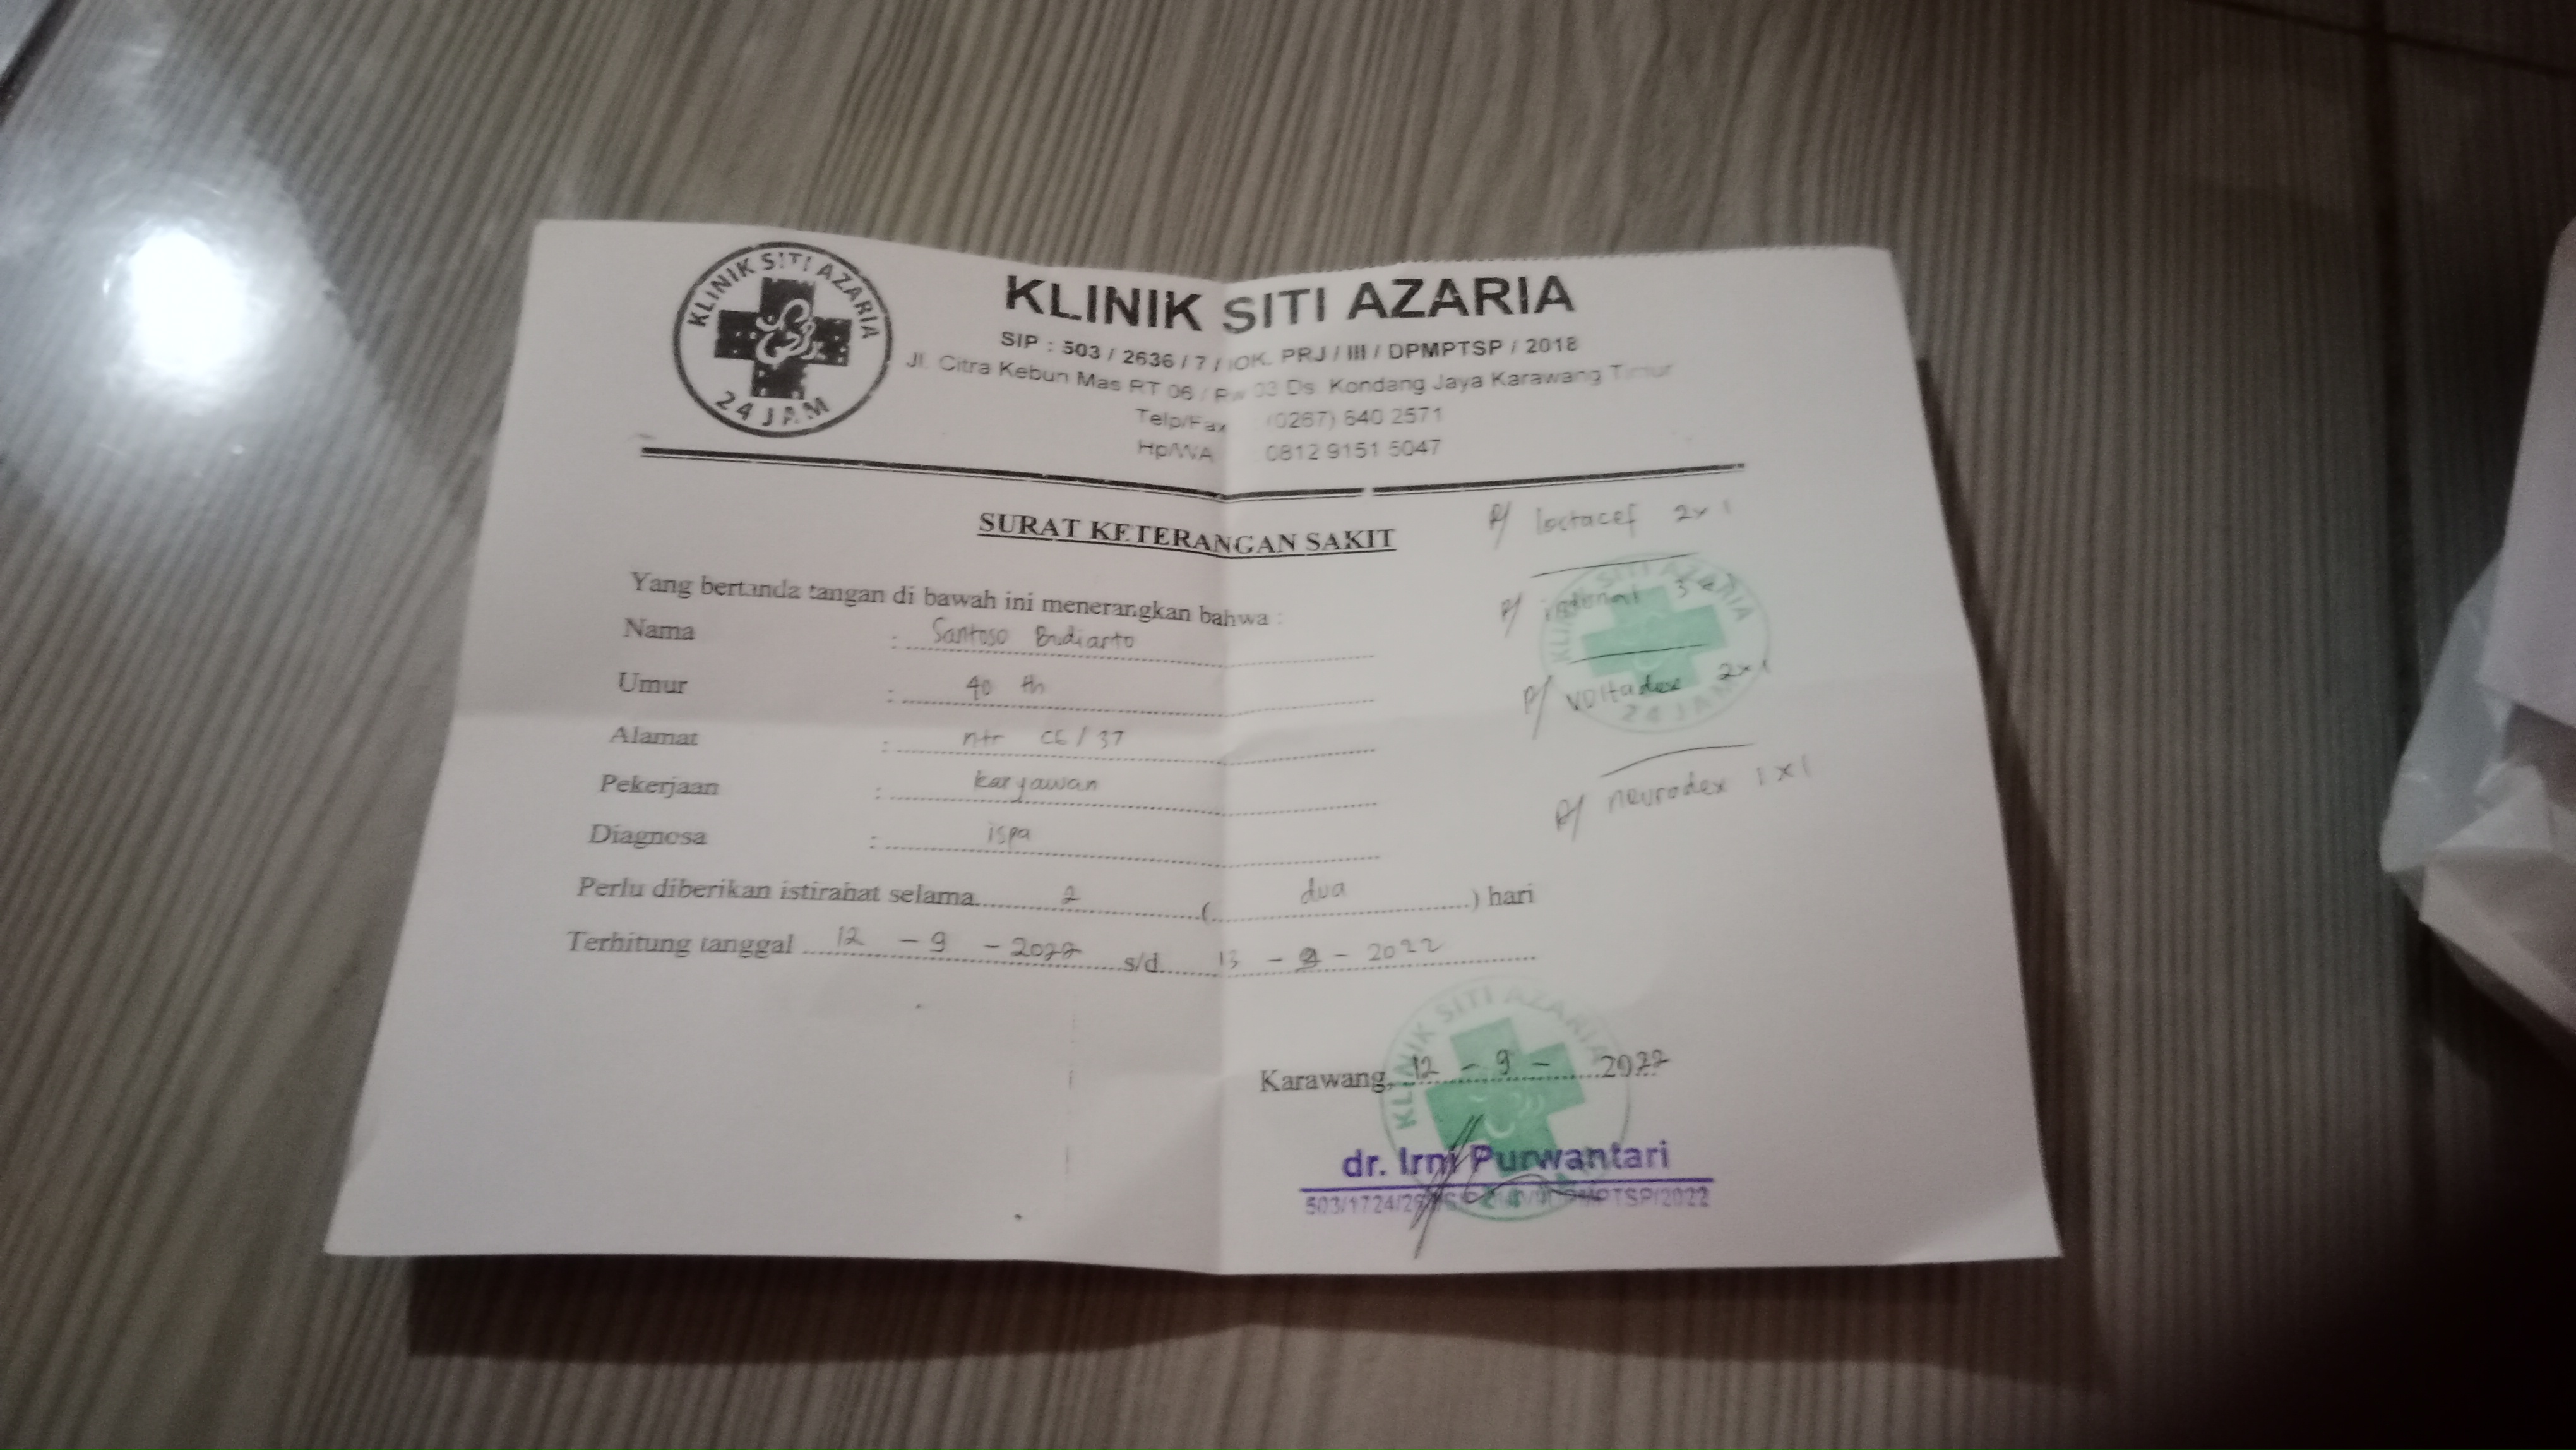 KLINIK SITI AZARIA
24 JAM
KLINIK SITI AZARIA
SIP : 503 / 2636 / 7 / IOK. PRJ / III / DPMPTSP / 2018
Jl. Citra Kebun Mas RT 06 / Rw 03 Ds. Kondang Jaya Karawang Timur
Telp/Fax (0267) 640 2571
Hp/WA 0812 9151 5047
SURAT KETERANGAN SAKIT
Yang bertanda tangan di bawah ini menerangkan bahwa :
Nama : Santoso Budiarto
Umur : 40 th
Alamat : ntr CE / 37
Pekerjaan : karyawan
Diagnosa : ispa
Perlu diberikan istirahat selama 2 ( dua ) hari
Terhitung tanggal 12 - 9 - 2022 s/d 13 - 9 - 2022
R/ lostacef 2x1
R/ 3x1
R/ voltadex 2x1
R/ neurodex 1x1
KLINIK SITI AZARIA
24 JAM
Karawang, 12 - 9 - 2022
KLINIK SITI AZARIA
dr. Irni Purwantari
503/1724/29 DPMPTSP/2022